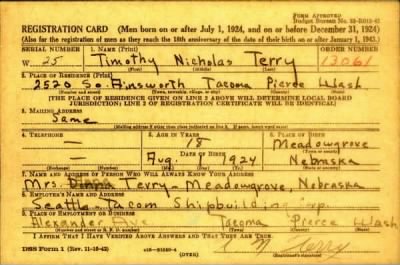 FORM APPROVED
Budget Bureau No. 33-R012-42
REGISTRATION CARD (Men born on or after July 1, 1924, and on or before December 31, 1924)
(Also for the registration of men as they reach the 18th anniversary of the date of their birth on or after January 1, 1943.)
SERIAL NUMBER 1. NAME (Print) ORDER NUMBER
W 25 Timothy Nicholas Terry 13061
(First) (Middle) (Last)
2. PLACE OF RESIDENCE (Print)
2520 So. Ainsworth Tacoma Pierce Wash
(Number and street) (Town, township, village, or city) (County) (State)
[THE PLACE OF RESIDENCE GIVEN ON LINE 2 ABOVE WILL DETERMINE LOCAL BOARD
JURISDICTION; LINE 2 OF REGISTRATION CERTIFICATE WILL BE IDENTICAL]
3. MAILING ADDRESS
Same
[Mailing address if other than place indicated on line 2. If same, insert word same]
4. TELEPHONE 5. AGE IN YEARS 6. PLACE OF BIRTH
— 18 Meadowgrove
DATE OF BIRTH (Town or county)
— Aug. 1924 Nebraska
(Exchange) (Number) (Mo.) (Day) (Yr.) (State or country)
7. NAME AND ADDRESS OF PERSON WHO WILL ALWAYS KNOW YOUR ADDRESS
Mrs. Terry - Meadowgrove, Nebraska
8. EMPLOYER'S NAME AND ADDRESS
Seattle-Tacom Shipbuilding Corp.
9. PLACE OF EMPLOYMENT OR BUSINESS
Alexander Ave. Tacoma Pierce Wash.
(Number and street or R. F. D. number) (Town) (County) (State)
I AFFIRM THAT I HAVE VERIFIED ABOVE ANSWERS AND THAT THEY ARE TRUE.
DSS Form 1 (Rev. 11-16-42) (OVER) Terry